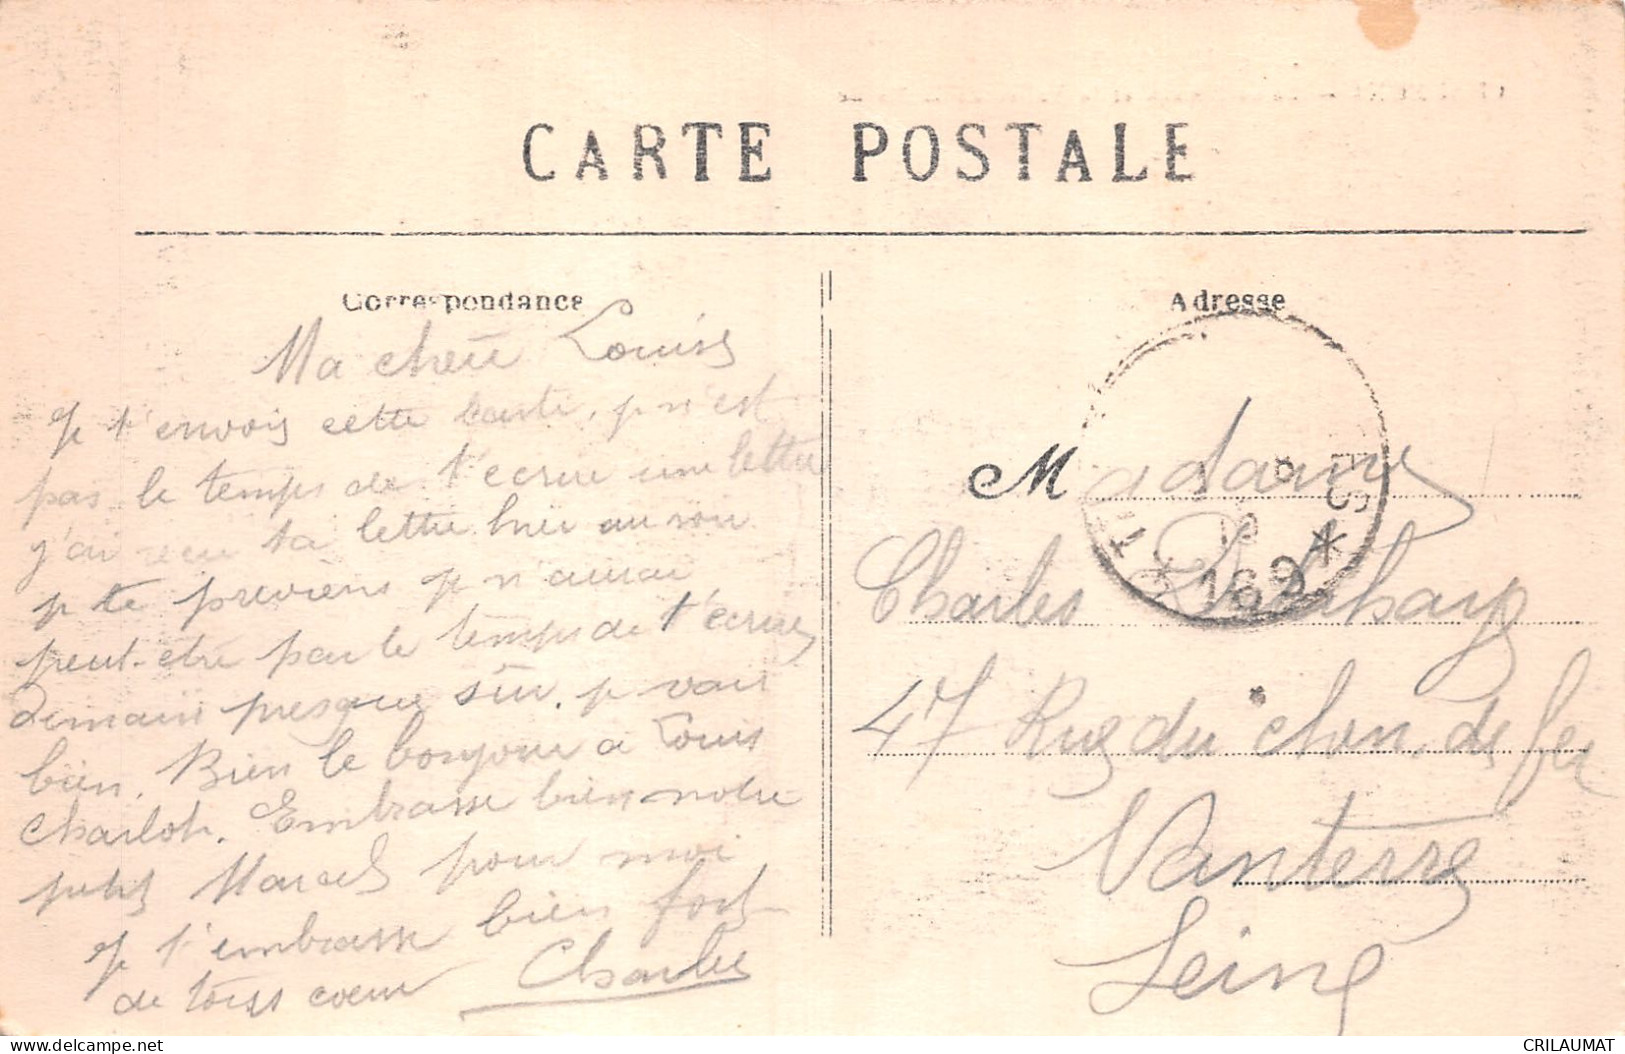 CARTE POSTALE
Correspondance
Ma chère Louise
Je t'envois cette carte, je n'est
pas le temps de t'ecrire une lettre
j'ai reçu ta lettre hier au soir
je te previens je n'aurai
peut-etre pas le temps de t'ecrire
demain presque sûr. je vais
bien. Bien le bonjour a Louis
Charlot. Embrasse bien notre
petit Marcel pour moi
Je t'embrasse bien fort
de tout coeur Charles
Adresse
Madame
Charles
47 Rue du chem. de fer
Nanterre
Seine
169
delcampe.net
CRILAUMAT